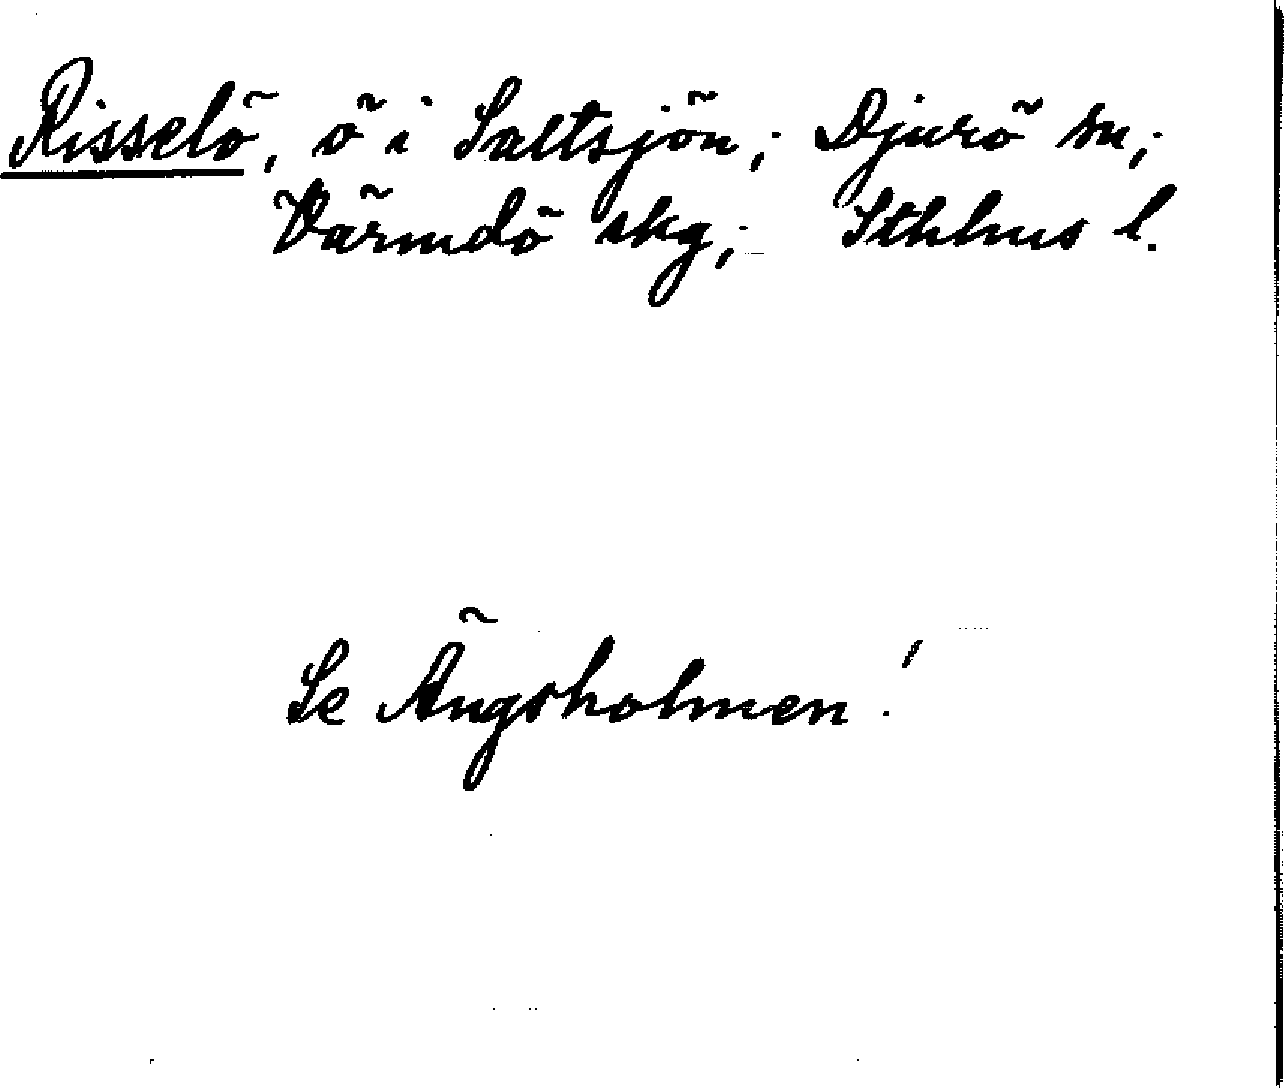 Risselö, ö i Saltsjön; Djurö sn;
Värmdö skg; Sthlms l.
Se Ängsholmen!